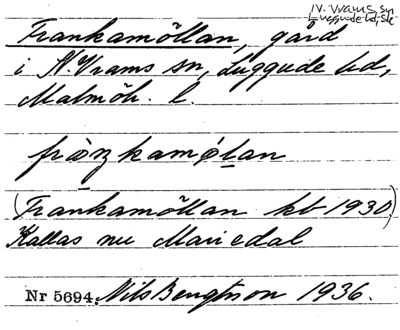 N. Vrams sn
Luggude hd, Sk
Frankamöllan, gård
i N. Vrams sn, Luggude hd,
Malmöh. l.
fràŋkamø̂lan
(Frankamöllan kb 1930)
Kallas nu Mariedal
Nr 5694. Nils Bengtsson 1936.